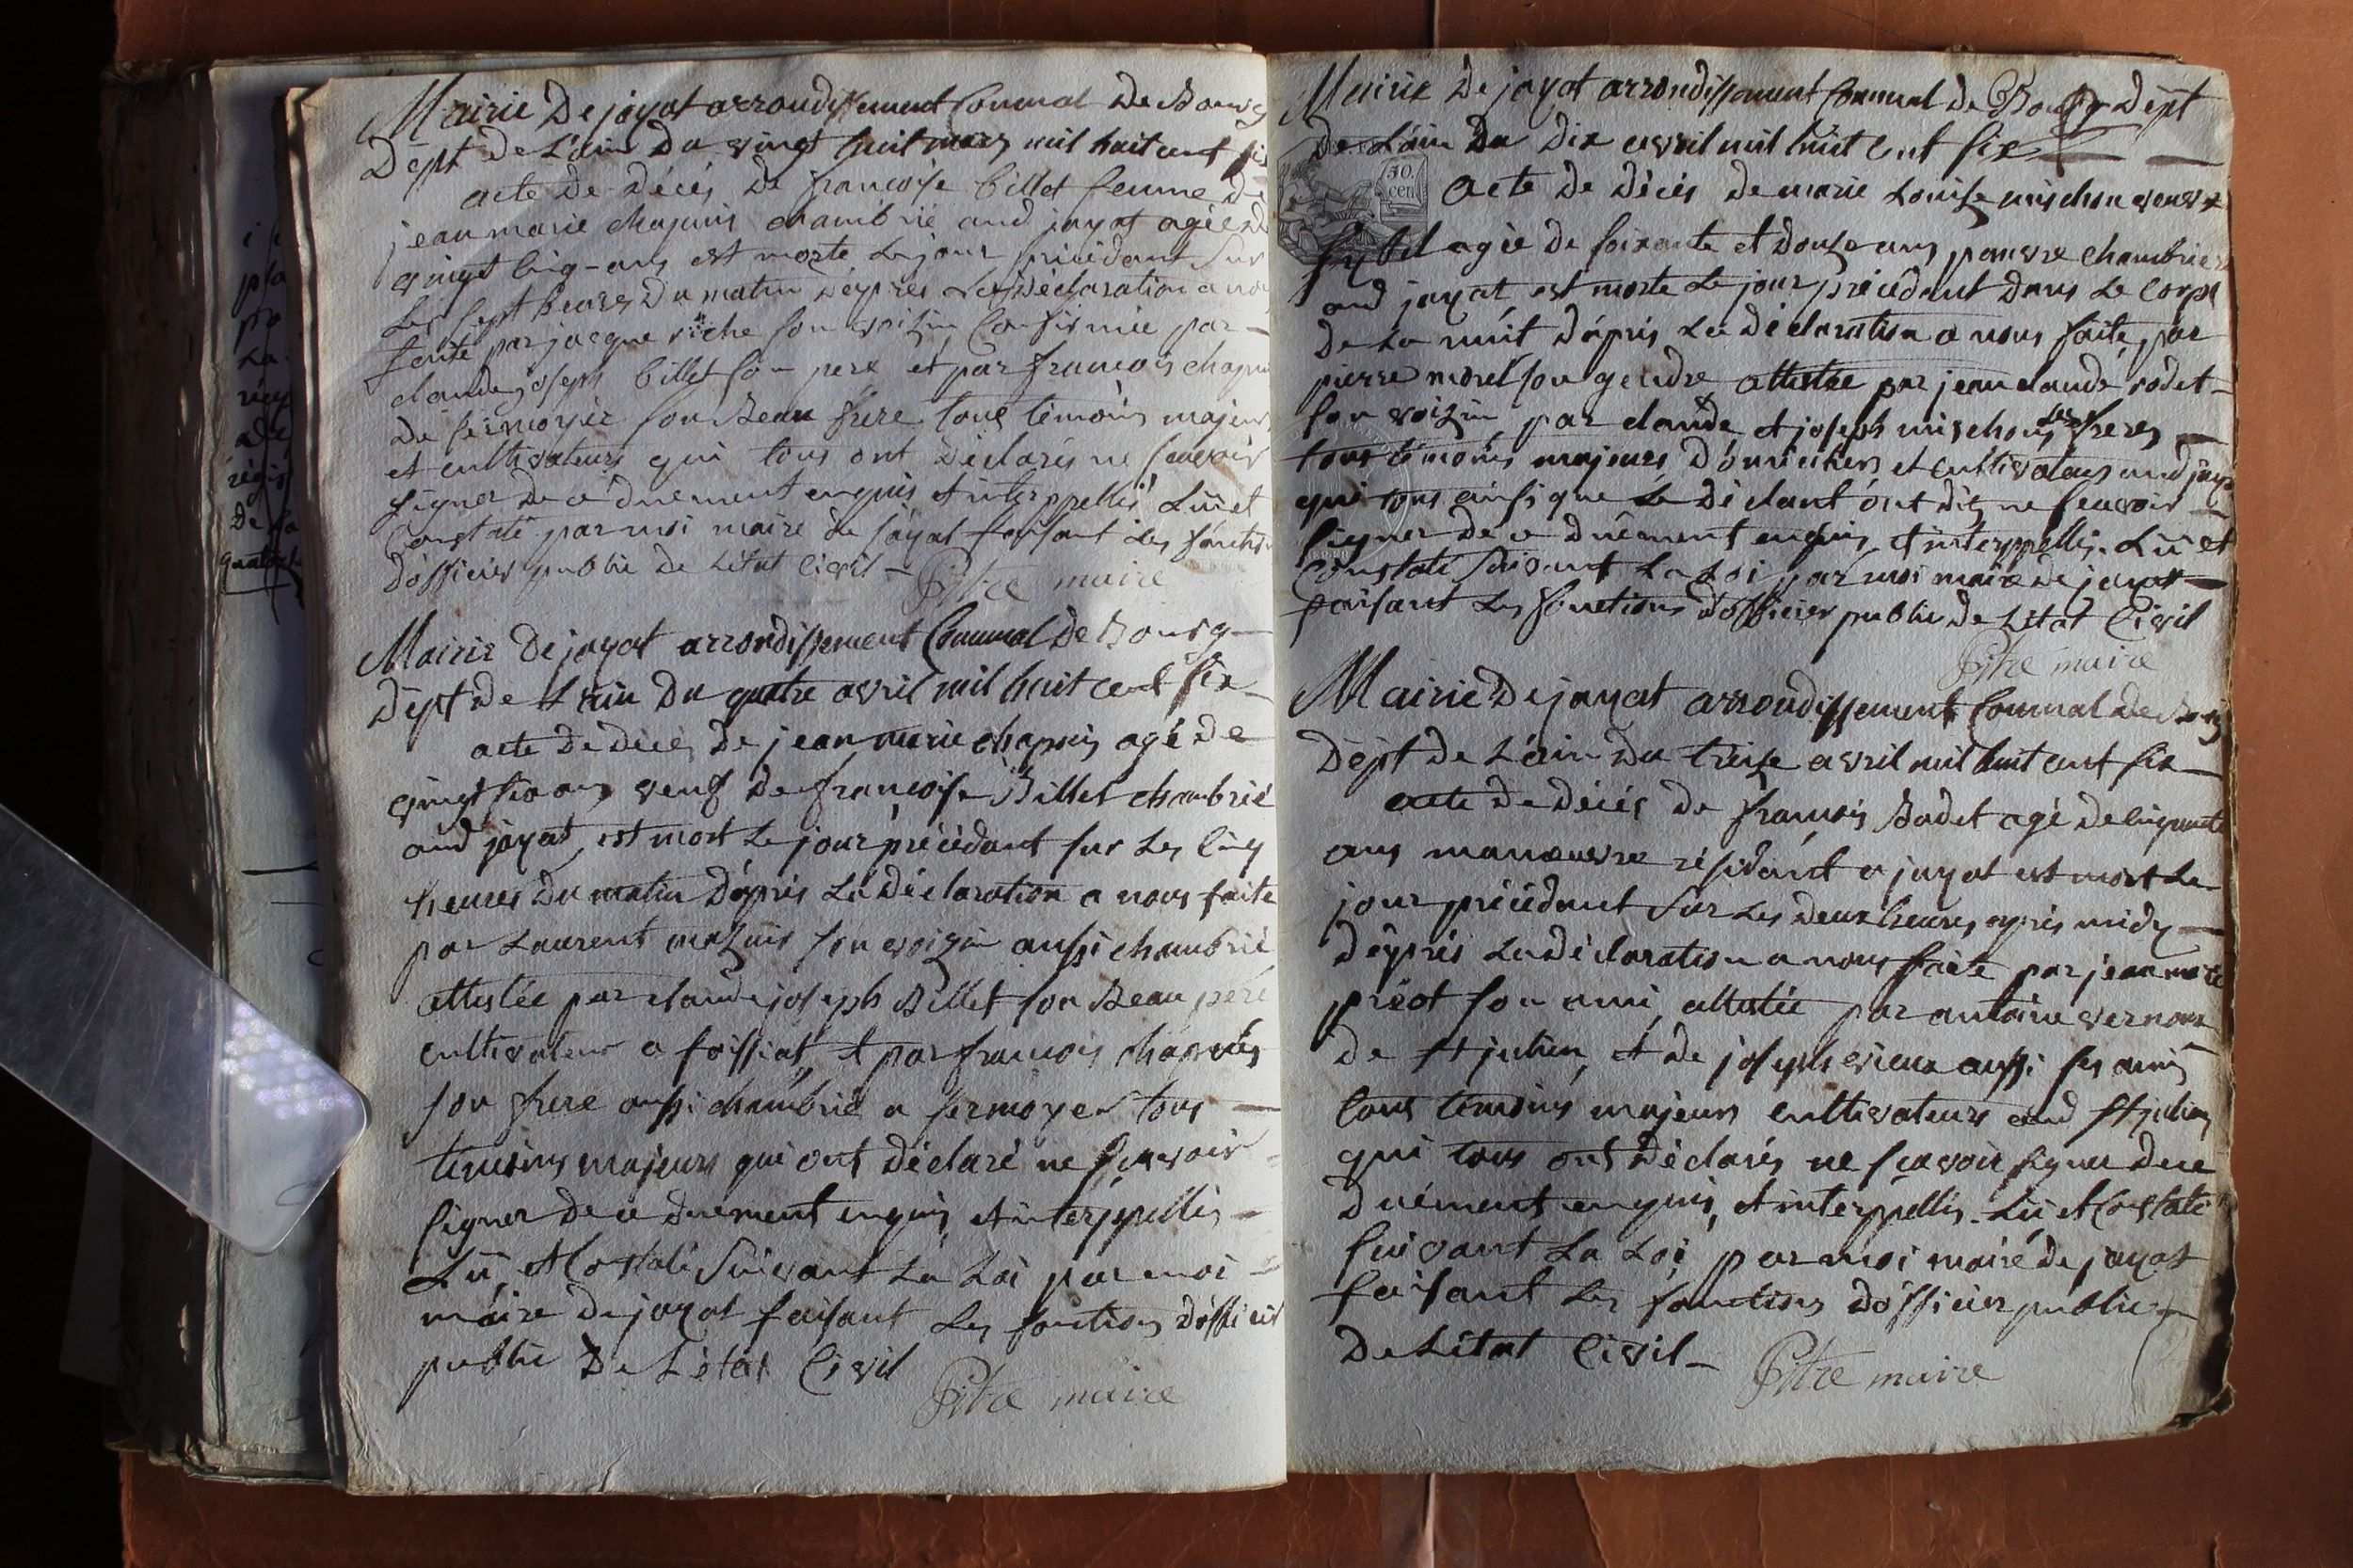 Mairie De jayat arrondissement Comunal De Bourg
Dept De L'ain Du vingt huit mars mil huit cent six
acte De Décés De francoise billet femme De
jean marie chapuis chambrié aud jayat agée De
vingt cinq ans est morte Le jour précédant Sur
Les sept heures Du matin D'après La Déclaration a nous
faite par jacque riche son voizin Confirmée par
claude joseph billet son pere et par francois chapuis
De sermoyer son Beau frère tous témoins majeurs
et cultivateurs qui tous ont Déclarés ne scavoir
signer De ce duement enquis et interppellés Lû et
Constaté par moi maire De jayat faisant Les fonctions
D'officier public De Létat Civil
Pitre maire
Mairie De jayat arrondissement Comunal De Bourg
Dept De L'ain Du quatre avril mil huit cent six
acte De Décés De jean marie chapuis agé De
vingt six ans veuf De francoise Billet chambrié
aud jayat, est mort Le jour précédant sur Les cinq
heures Du matin D'après La Déclaration a nous faite
par Laurent son voizin aussi chambrié
attestée par claude joseph Billet son Beau pere
cultivateur a foissiat, et par francois chapuis
son frere aussi chambrié a sermoyer tous
temoins majeurs qui ont Déclaré ne scavoir
signer De ce duement enquis, et interppellés
Lû, et Constaté Suivant La Loi par moi
maire De jayat faisant Les fonctions D'officier
public De L'état Civil
Pitre maire
Mairie De jayat arrondissement Comunal De Bourg Dept
De L'ain Du Dix avril mil huit cent six
50. cen.
acte De Décés De marie Louise mischon veuve
agée De soixante et Douze ans, pauvre chambriere
aud jayat, est morte Le jour précédant Dans Le Corps
De La nuit D'après La Déclaration a nous faite, par
pierre morel son gendre attestée par jean claude rodet
son voizin, par claude, et joseph mischons ses freres
tous témoins majeurs, et cultivateurs aud jayat
qui tous ainsi que Le Déclant ont Dit ne scavoir
signer De ce duement enquis, et interppellés. Lû et
Constaté Suivant La Loi par moi maire De jayat
faisant Les fonctions D'officier public De Létat Civil
Pitre maire
Mairie De jayat arrondissement Comunal De Bourg
Dépt De L'ain Du treise avril mil huit cent six
acte De Décés De francois Badet agé De cinquante
ans manoeuvre résidant a jayat est mort Le
jour précédant Sur Les Deux heures après midy
D'après La Déclaration a nous faite par jean marie
préot son ami, attestée par antoine vernoux
De st julien, et De joseph vieux aussi ses amis
tous témoins majeurs cultivateurs aud st julien
qui tous ont Déclarés ne scavoir signer De ce
Duément enquis, et interppellés. Lû et Constaté
suivant La Loi par moi maire De jayat
faisant Les fonctions D'officier public
De Létat Civil
Pitre maire